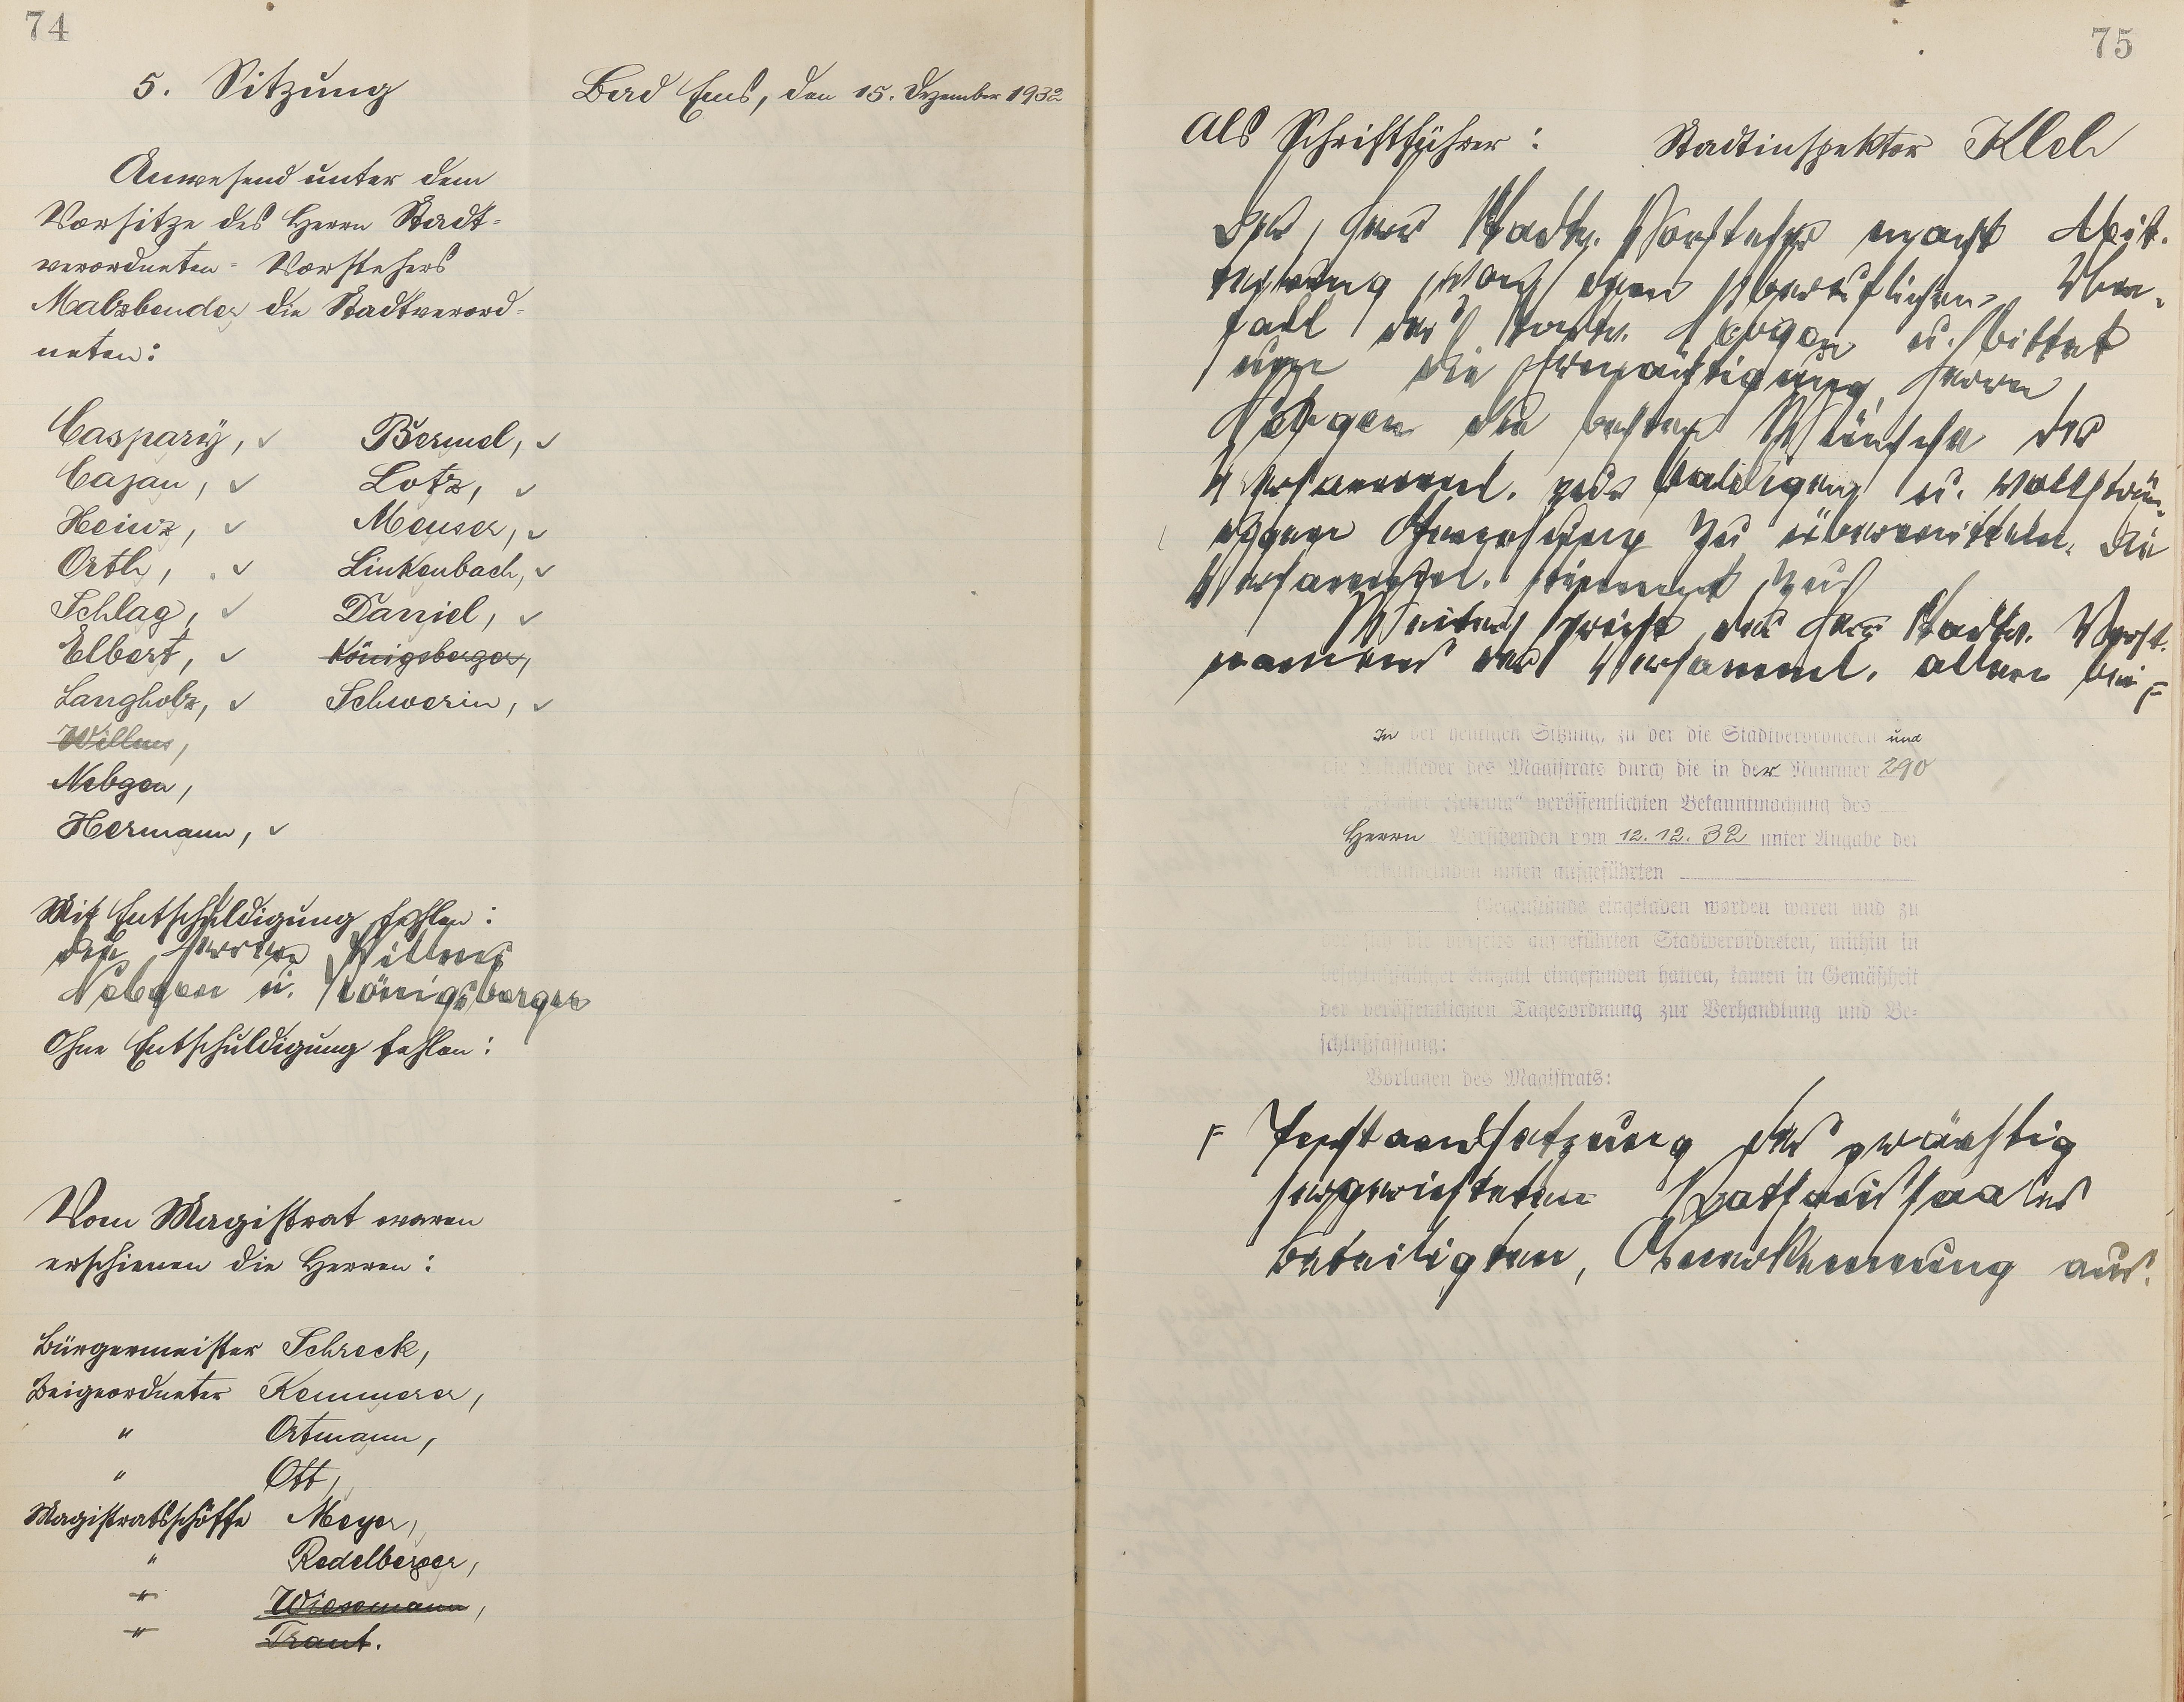 74
5. Sitzung
Bad Ems, den 15. Dezember 1932
Anwesend unter dem
Vorsitze des Herrn Stadt=
verordneten=Vorstehers
Malzbender die Stadtverord=
neten:
Caspary, ✓ Bermel, ✓
Cajan, ✓ Lotz, ✓
Heinz, ✓ Meuser, ✓
Orth, ✓ Linkenbach, ✓
Schlag, ✓ Daniel, ✓
Elbert, ✓ Königsberger,
Langholz, ✓ Schwerin, ✓
Willms,
Nebgen,
Hermann, ✓
Mit Entschuldigung fehlen:
die Herren Willms
Nebgen u. Königsberger
Ohne Entschuldigung fehlen:
Vom Magistrat waren
erschienen die Herren:
Bürgermeister Schreck,
Beigeordneter Kemmerer,
" Ortmann,
" Ott,
Magistratsschöffe Meyer,
" Redelberger,
" Wiesemann,
" Traut.
75
Als Schriftführer: Stadtinspektor Kleb
Der Herr Stadtv. Vorsteher macht Mit=
teilung von dem beruflichen Un=
fall des Stadtv. Nebgen u. bittet
um die Ermächtigung, Herrn
Nebgen die besten Wünsche der
Versamml. zur baldigen u. vollstän=
digen Genesung zu übermitteln. Die
Versamml. stimmt zu.
Weiter spricht der Herr Stadtv. Vorst.
namens der Versamml. allen bei F
In der heutigen Sitzung, zu der die Stadtverordneten und
die Mitglieder des Magistrats durch die in der Nummer 290
der Zeitung" veröffentlichten Bekanntmachung des
Herrn Vorsitzenden vom 12.12.32 unter Angabe der
zu verhandelnden unten aufgeführten
Gegenstände eingeladen worden waren und zu
der sich die vorseits aufgeführten Stadtverordneten, mithin in
beschlußfähiger Anzahl eingefunden hatten, kamen in Gemäßheit
der veröffentlichten Tagesordnung zur Verhandlung und Be=
schlußfassung:
Vorlagen des Magistrats:
F Instandsetzung des prächtig
hergerichteten Rathaussaales
Beteiligten, Anerkennung aus.